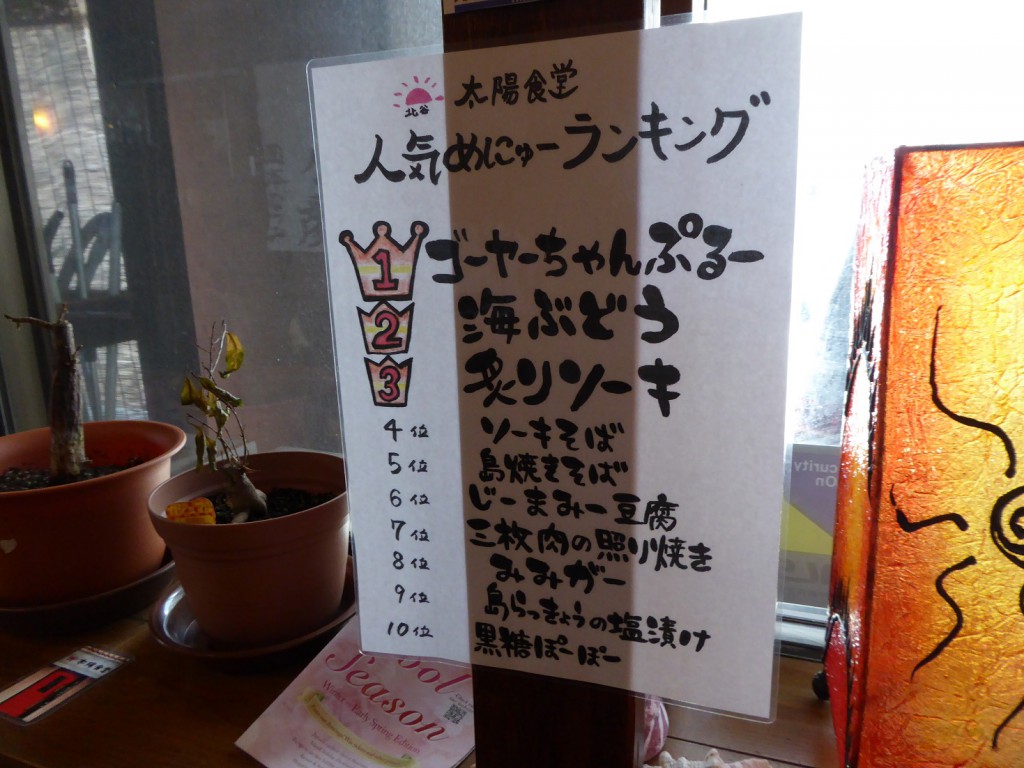 北谷
太陽食堂
人気めにゅーランキング
1 ゴーヤーちゃんぷるー
2 海ぶどう
3 炙りソーキ
4位 ソーキそば
5位 島焼きそば
6位 じーまみー豆腐
7位 三枚肉の照り焼き
8位 みみがー
9位 島らっきょうの塩漬け
10位 黒糖ぽーぽー
Season
Winter - Early Spring Edition
curity
On